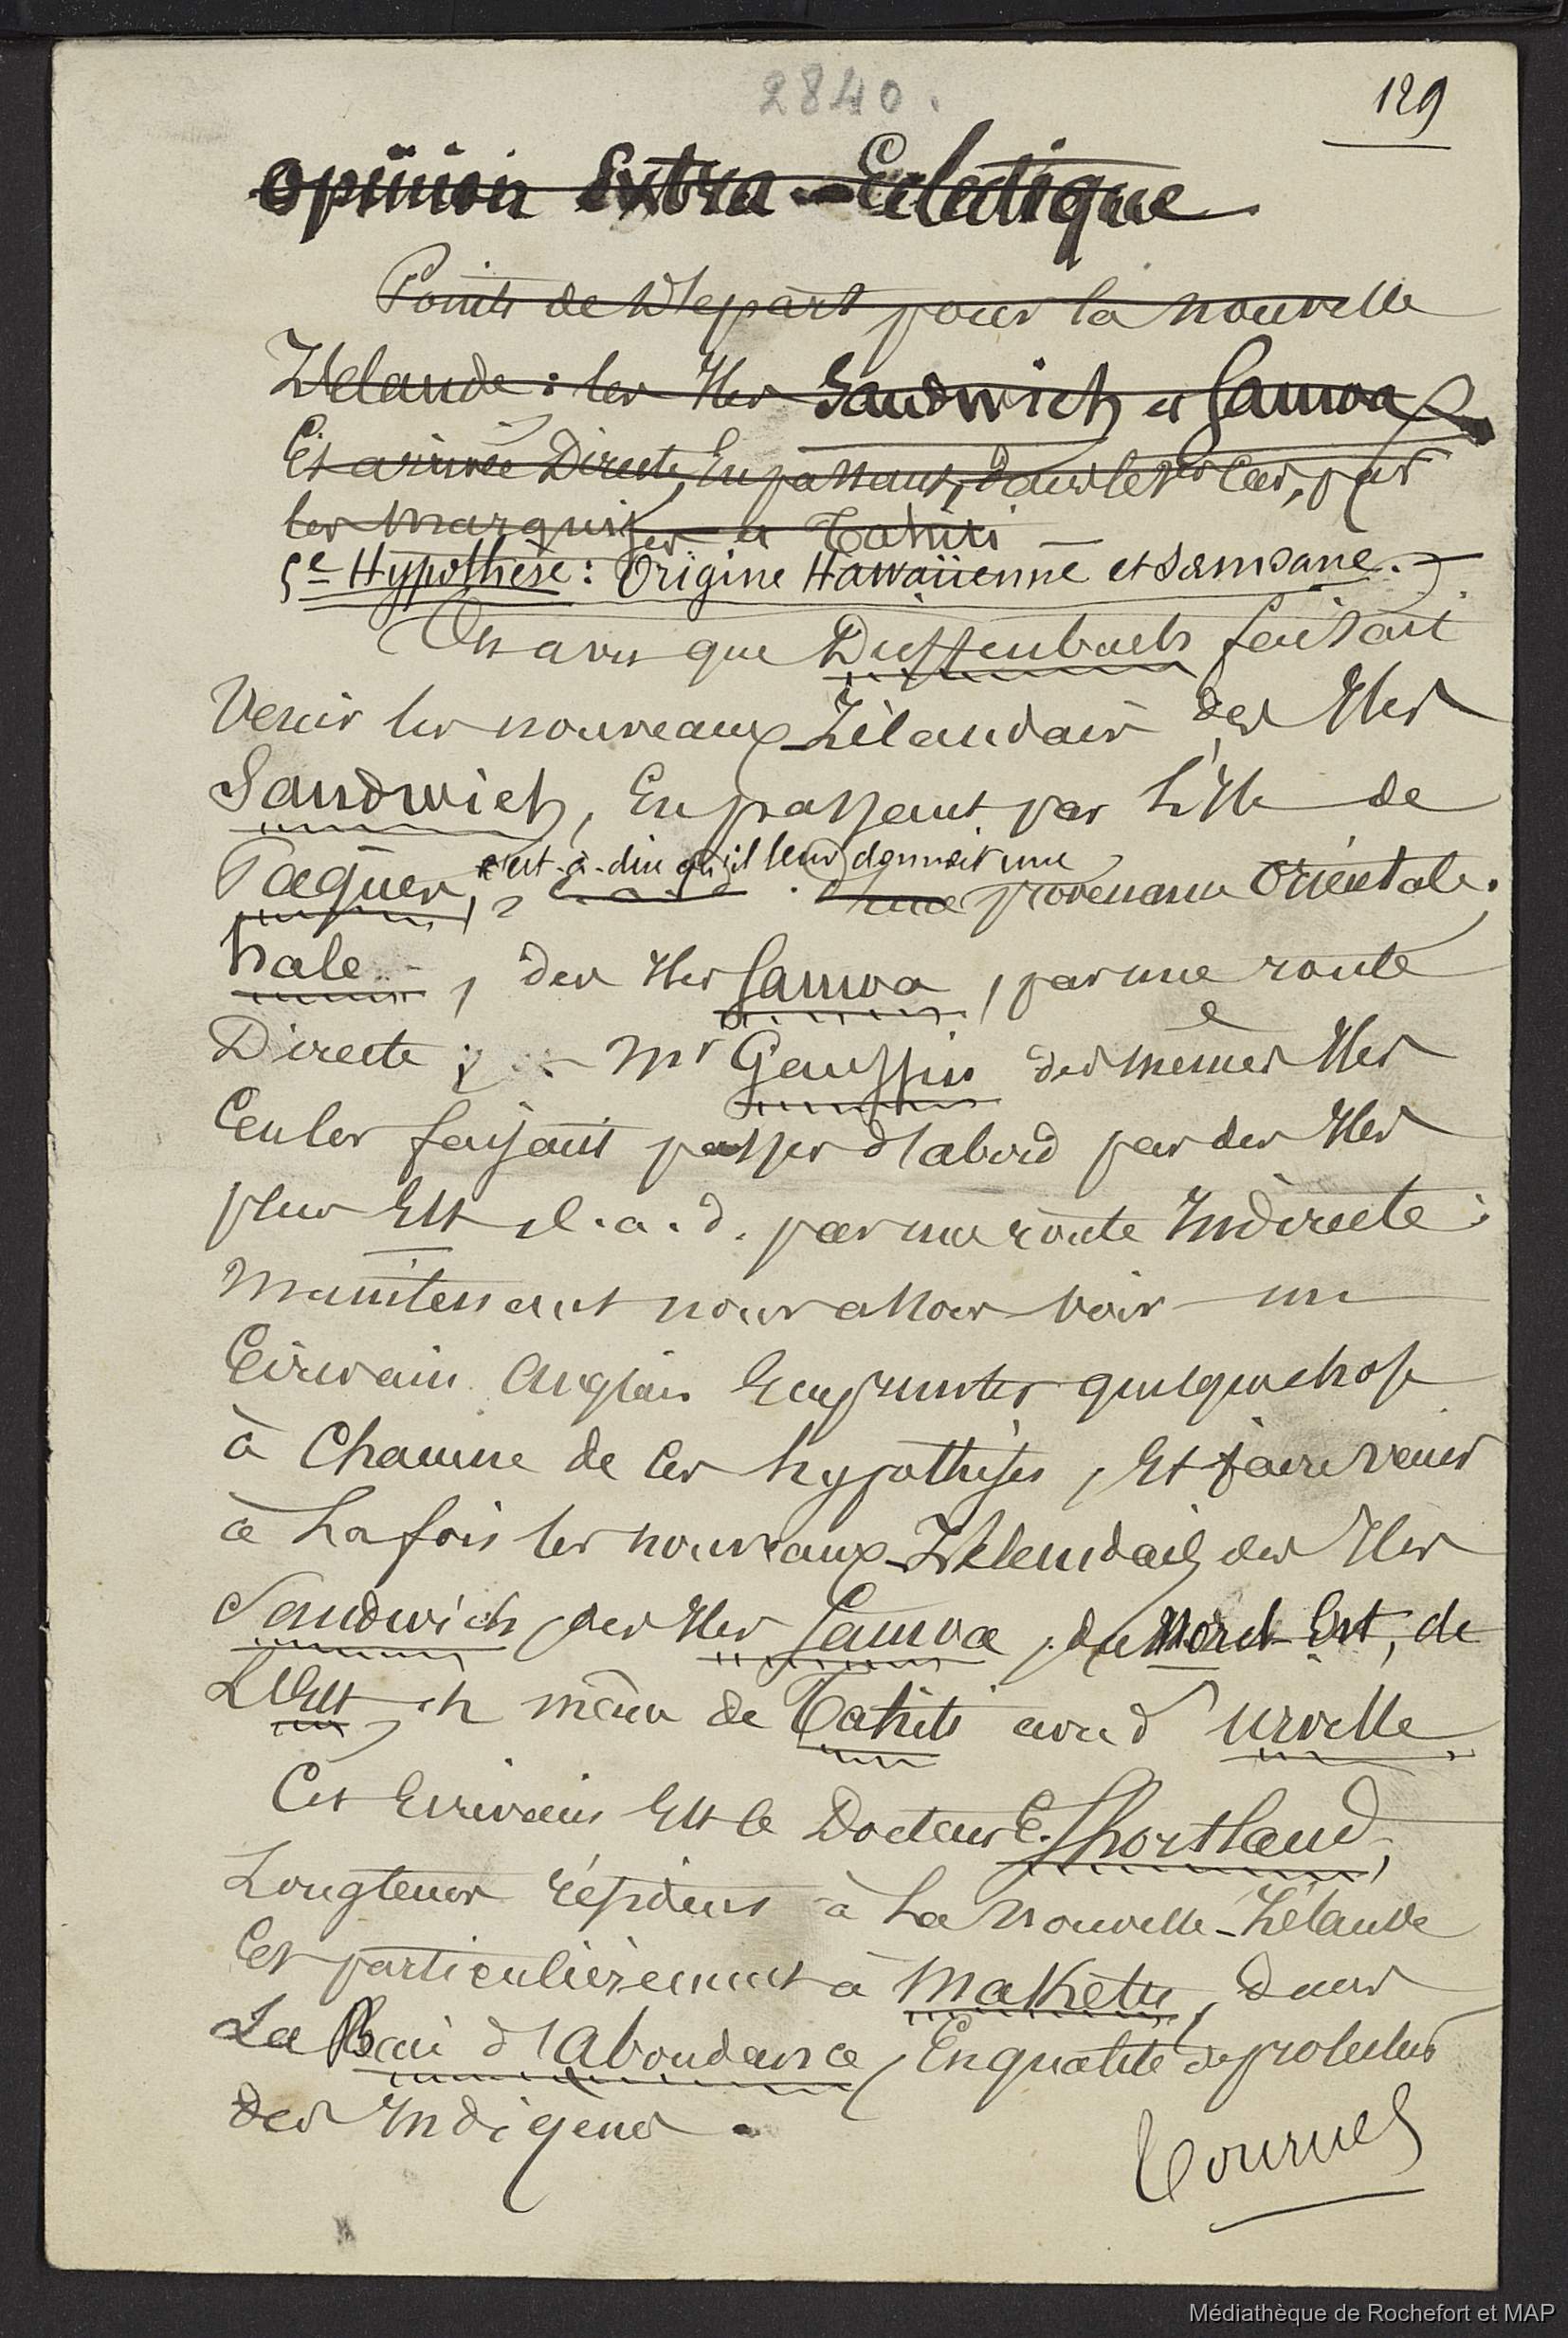 2840.
129
Opinion Extra-Eclectique
Points de Départ pour la nouvelle
Zélande : les Iles Sandwich et Samoa
Et arrivée Directe, En passant, dans le 1er cas, par
les Marquises et Tahiti —
5e Hypothèse : Origine Hawaiienne et Samoane. —
On a vu que Dieffenbach faisait
Venir les nouveaux-Zélandais des Iles
Sandwich, En passant par l'Ile de
Pâques, c'est-à-dire qu'il leur donnait une
une provenance Orientale.
hale, des Iles Samoa, par une route
Directe ; - Mr Gaussin des mêmes Iles
Ceuler faisant passer d'abord par des Iles
plus Est c.a.d. par une route Indirecte ;
Maintenant nous allons voir un
Ecrivain Anglais Emprunter quelque chose
à Chacune de ces hypothèses, Et faire venir
à la fois les nouveaux-Zélandais des Iles
Sandwich, des Iles Samoa, du Nord-Est, de
L'Est, et même de Tahiti avec d'Urville
Cet Ecrivain Est le Docteur E. Shortland,
Longtems résident à la Nouvelle-Zélande
Et particulièrement à Maketu, dans
La Baie d'Abondance, En qualité de protecteur
des Indigènes.
Tournez
Médiathèque de Rochefort et MAP